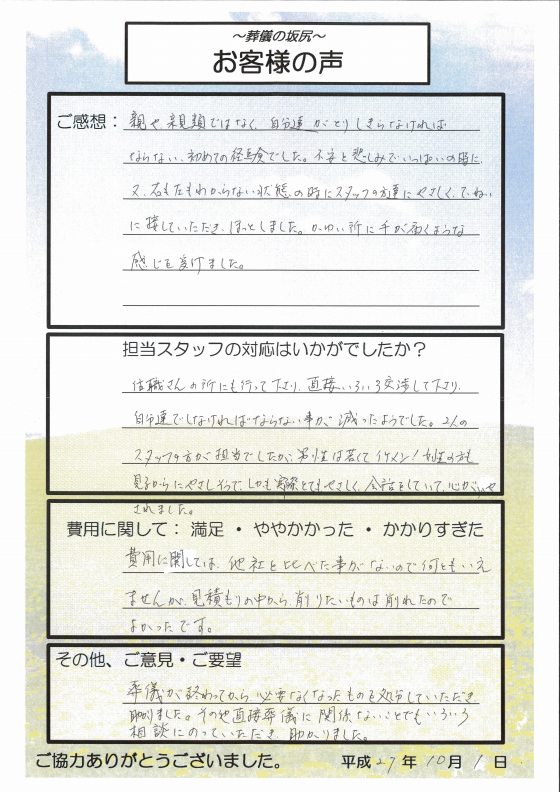 ～葬儀の坂尻～
お客様の声
ご感想： 親や、親類ではなく、自分達がとりしきらなければ
ならない、初めての経験でした。不安と悲しみでいっぱいの時に、
又、右も左もわからない状態の時にスタッフの方達にやさしく、ていねい
に接していただき、ほっとしました。かゆい所に手が届くような
感じを受けました。
担当スタッフの対応はいかがでしたか？
住職さんの所にも行って下さり、直接いろいろ交渉して下さり、
自分達でしなければならない事が減ったようでした。2人の
スタッフの方が担当でしたが、男性は若くてイケメン！女性の方も
見るからにやさしそうで、しかも実際とてもやさしく、会話をしていて、心がいや
されました。
費用に関して： 満足 ・ ややかかった ・ かかりすぎた
費用に関しては、他社と比べた事がないので何ともいえ
ませんが、見積もりの中から、削りたいものは削れたので
よかったです。
その他、ご意見・ご要望
葬儀が終わってから必要なくなったものも処分していただき
助かりました。その他直接葬儀に関係ないことでもいろいろ
相談にのっていただき、助かりました。
ご協力ありがとうございました。 平成27年10月1日